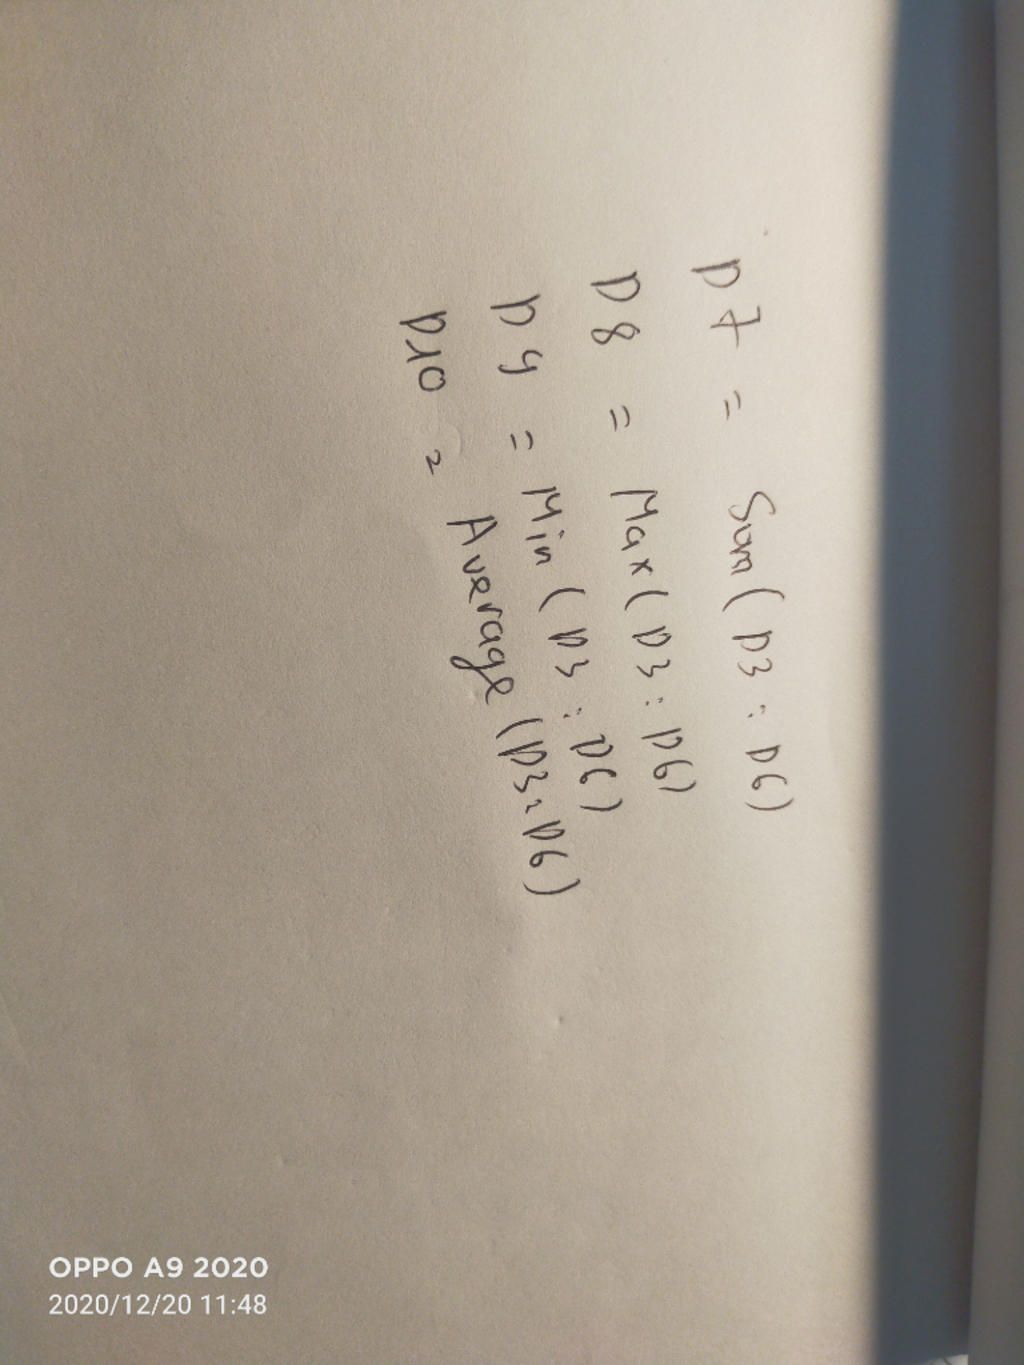 D7 = Sum(D3:D6)
D8 = Max(D3:D6)
D9 = Min(D3:D6)
D10 = Average(D3:D6)
OPPO A9 2020
2020/12/20 11:48